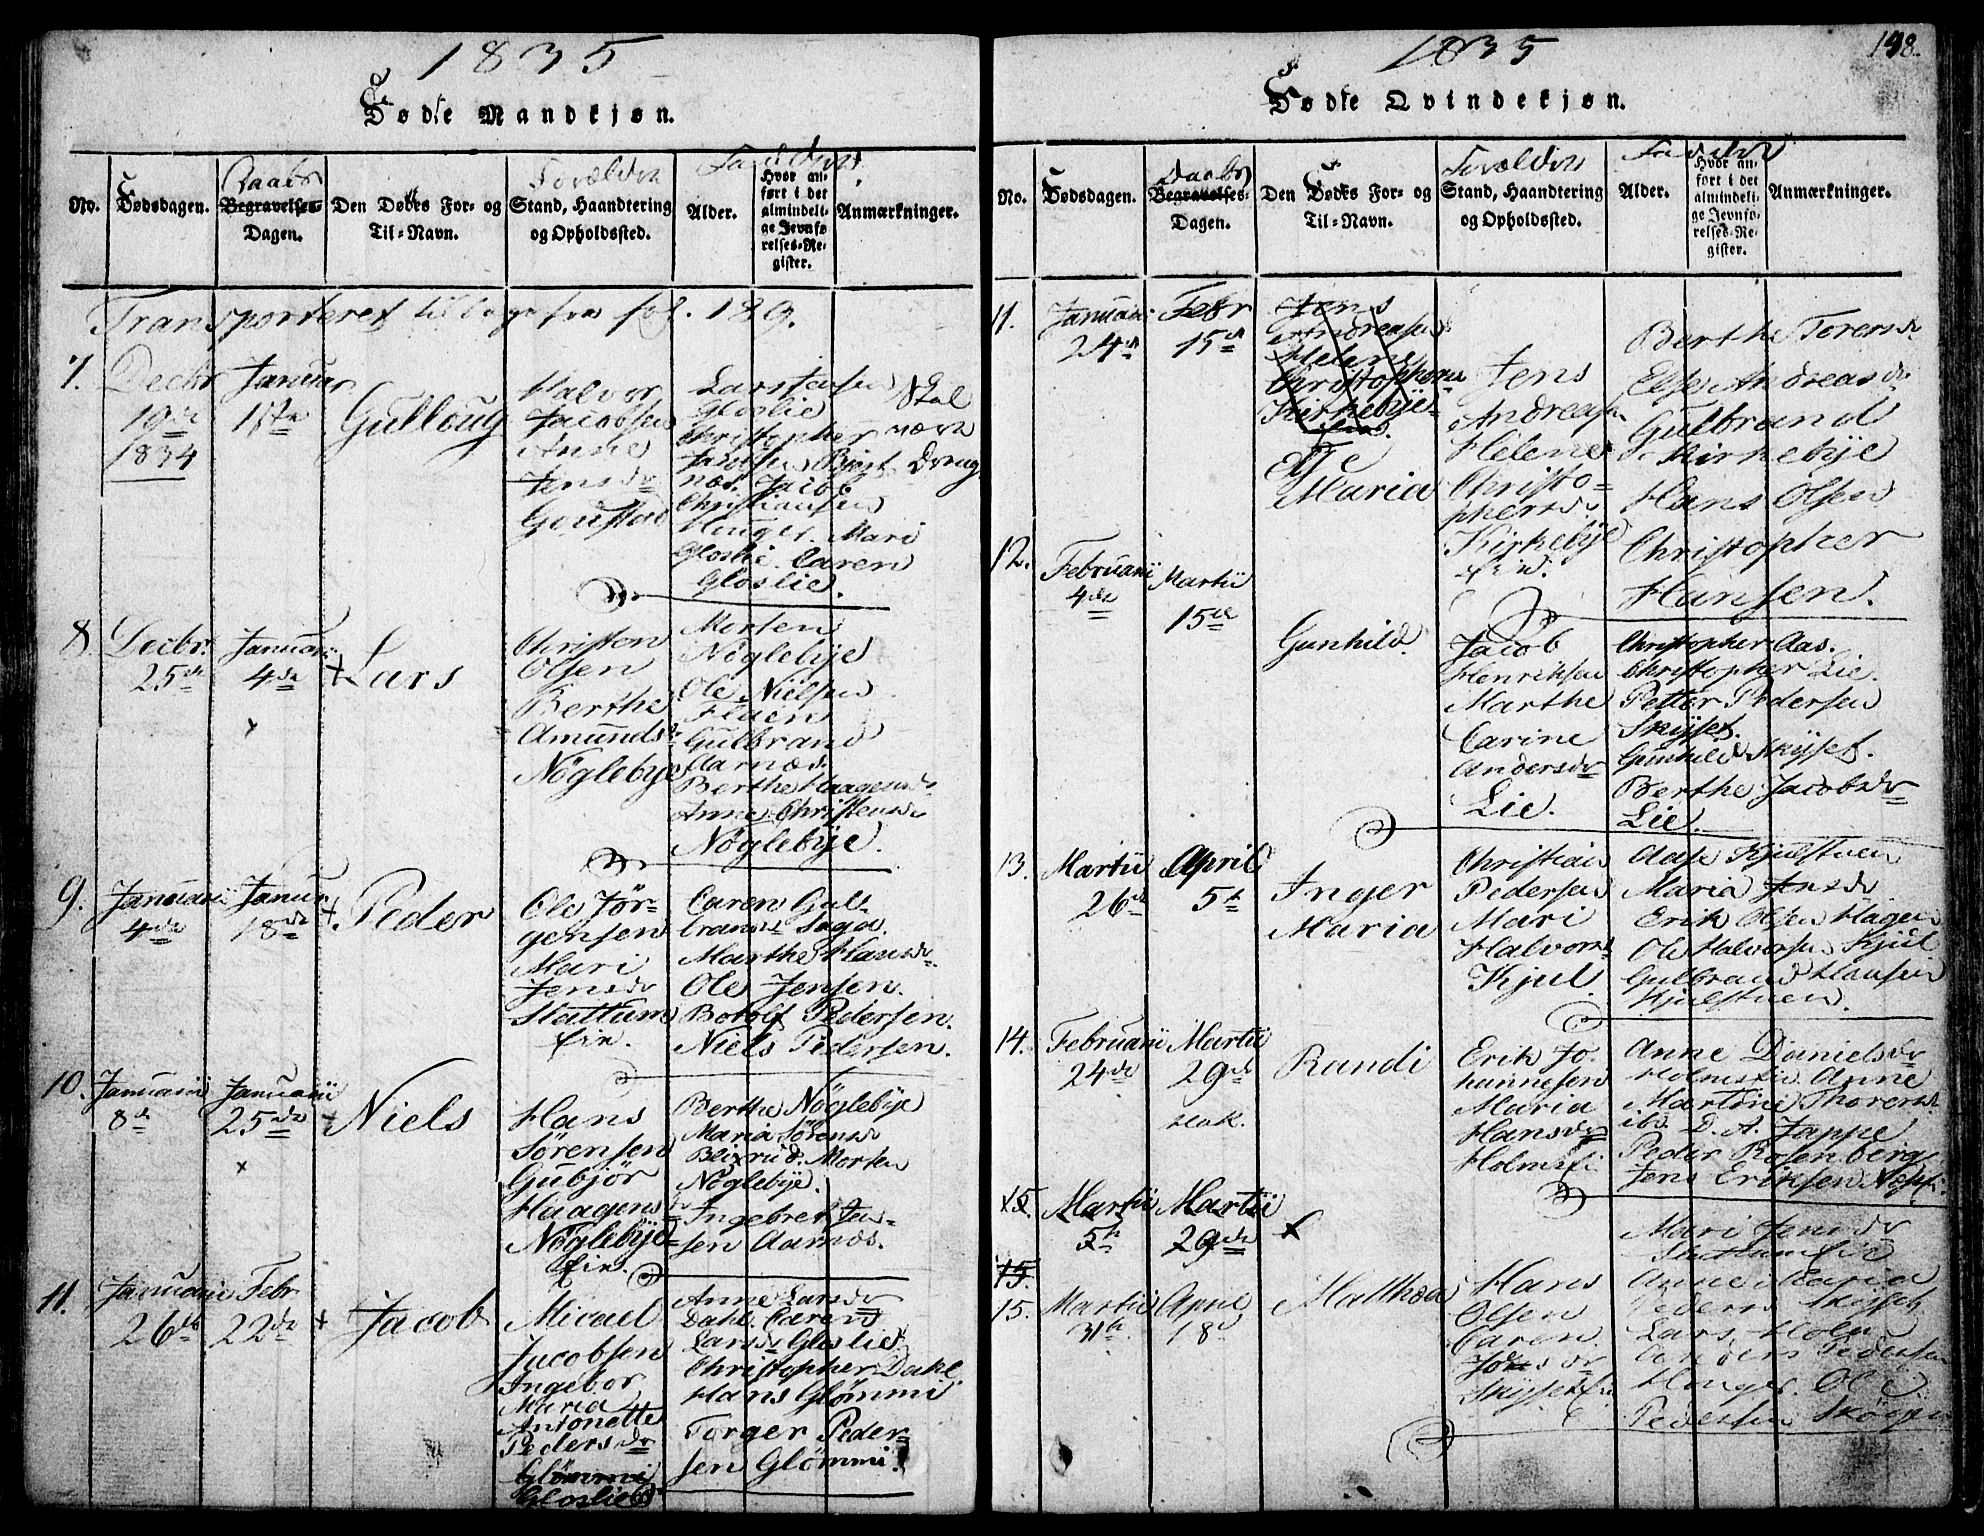 1835
Fødte Mandkjøn.
No.
Fødsdagen.
Daabs
Begravelses-
Dagen.
Den Døbtes For- og
Til-Navn.
Forældres
Stand, Haandtering
og Opholdssted.
Faddere
Alder.
Hvor an-
ført i det
almindeli-
ge Jevnfø-
relses-Re-
gister.
Anmærkninger.
Transporteret tilbage fra fol. 189.
7.
Decbr
19de
1834
Januar
1ste
Gulloug
Halvor
Jacobsen
Anne
Jensdr
Goustad
Lars Jensen
Gloslie
Christopher
Jacobsen Biørt-
næs. Jacob
Christiansen
Houger. Mari
Gloslie. Caren
Gloslie.
Skal
være
Dreng
8.
Decbr.
25de
Januarii
4de
+ Lars
Christen
Olsen
Berthe
Amundsdr
Nöglebye
Morten
Nöglebye
Ole Nielsen
Flaen
Gulbrand
Aarnæs
Berthe Haagensdr
Anne Christensdr
Nöglebye.
9.
Januarii
4de
Januar
18de
+ Peder
Ole Jör-
gensen
Mari
Jensdr
Slattum
eie.
Caren Gul-
brands Saga.
Marthe Hansdr.
Ole Jensen.
Botolf Pedersen.
Niels Pedersen.
10.
Januarii
8de
Januarii
25de
x
Niels
Hans
Sörensen
Gubjör
Haagens
Nöglebye
eie.
Berthe Nöglebye
Maria Sörensdr
Blixrud. Morten
Nöglebye.
Ingebret Jen-
sen Aarnæs.
11.
Januarii
26de
Febr
22de
+ Jacob
Micael
Jacobsen
Ingebor
Maria
Antonette
Pedersdr
Glömmi
Gloslie
Anne Larsdr
Dahl. Caren
Larsdr Gloslie
Christopher Dahl
Hans Glömmi
Torger Peder-
sen Glömmi.
1835
198.
Fødte Qvindekjøn.
No.
Fødsdagen.
Daabs
Begravelses-
Dagen.
Den Døbtes For- og
Til-Navn.
Forældres
Stand, Haandtering
og Opholdssted.
Faddere
Alder.
Hvor an-
ført i det
almindeli-
ge Jevnfø-
relses-Re-
gister.
Anmærkninger.
11.
Januarii
24de
Febr
15de
Jens
Andreasen
Helene
Christophersdr
Kirkebye-
eie.
Else
Maria
Jens
Andreasen
Helene
Christo-
phersdr.
Kirkebye
eie.
Berthe Toresdr.
Else Andreasdr
Gulbrand
Kirkebye
Hans Olsen
Christopher
Hansen.
12.
Februarii
4de
Martii
15de
Gunhild.
Jacob
Henriksen
Marthe
Carine
Andersdr
Lie.
Christopher Aas.
Christopher Lie.
Petter Pedersen
Skÿset.
Gunhild Skÿset.
Berthe Jacobsdr
Lie.
13.
Martii
26de
April
5te
Inger
Maria
Christian
Pedersen
Mari
Halvorsdr
Kjul
Aase Kjulstuen
Maria Jensdr
Erik Olsen Hagen
Ole Halvorsen Kjul
Gulbrand Hansen
Kjulstuen.
14.
Februarii
24de
Martii
29de
Hak.
Randi
Erik Jo-
hannesen
Maria
Hansdr
Holmsei
Anne Danielsdr
Holmsei. Anne
Martine Thoresdr
ibs. D. A. Jappe
Peder Rosenberg
Jens Eriksen
15.
Martii
5te
Martii
29de
x
15.
15.
Martii
31te
April
18de
Matthea
Hans
Olsen
Caren
Skÿset
Mari Jensdr
Anne Maria
Peders Skÿset
Lars Holm
Anders Pedersen
Houger. Ole
Pedersen